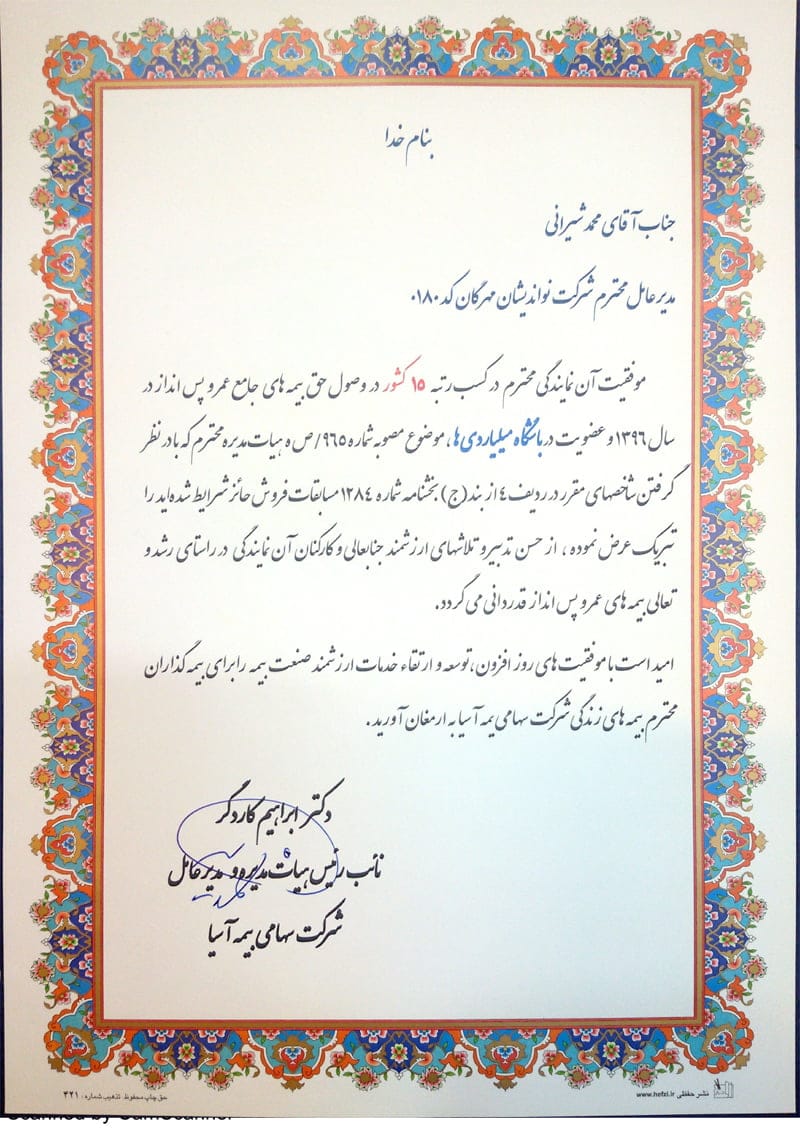 بنام خدا
جناب آقای محمد شیرانی
مدیر عامل محترم شرکت نواندیشان مهرگان کد ۰۱۸۰
موفقیت آن نمایندگی محترم در کسب رتبه ۱۵ کشور در وصول حق بیمه های جامع عمر و پس انداز در
سال ۱۳۹۶ و عضویت در باشگاه میلیاردی ها، موضوع مصوبه شماره ۹۶۵/ص ه هیات مدیره محترم که با در نظر
گرفتن شاخصهای مقرر در ردیف ۴ از بند (ج) بخشنامه شماره ۱۲۸۴ مسابقات فروش حائز شرایط شده اید را
تبریک عرض نموده ، از حسن تدبیر و تلاشهای ارزشمند جنابعالی و کارکنان آن نمایندگی در راستای رشد و
تعالی بیمه های عمر و پس انداز قدردانی می گردد.
امید است با موفقیت های روز افزون، توسعه و ارتقاء خدمات ارزشمند صنعت بیمه را برای بیمه گذاران
محترم بیمه های زندگی شرکت سهامی بیمه آسیا به ارمغان آورید .
دکتر ابراهیم کاردگر
نائب رئیس هیات مدیره و مدیر عامل
شرکت سهامی بیمه آسیا
نشر حفظی www.hefzi.ir
حق چاپ محفوظ. تذهیب شماره: ۴۲۱
Scanned by CamScanner